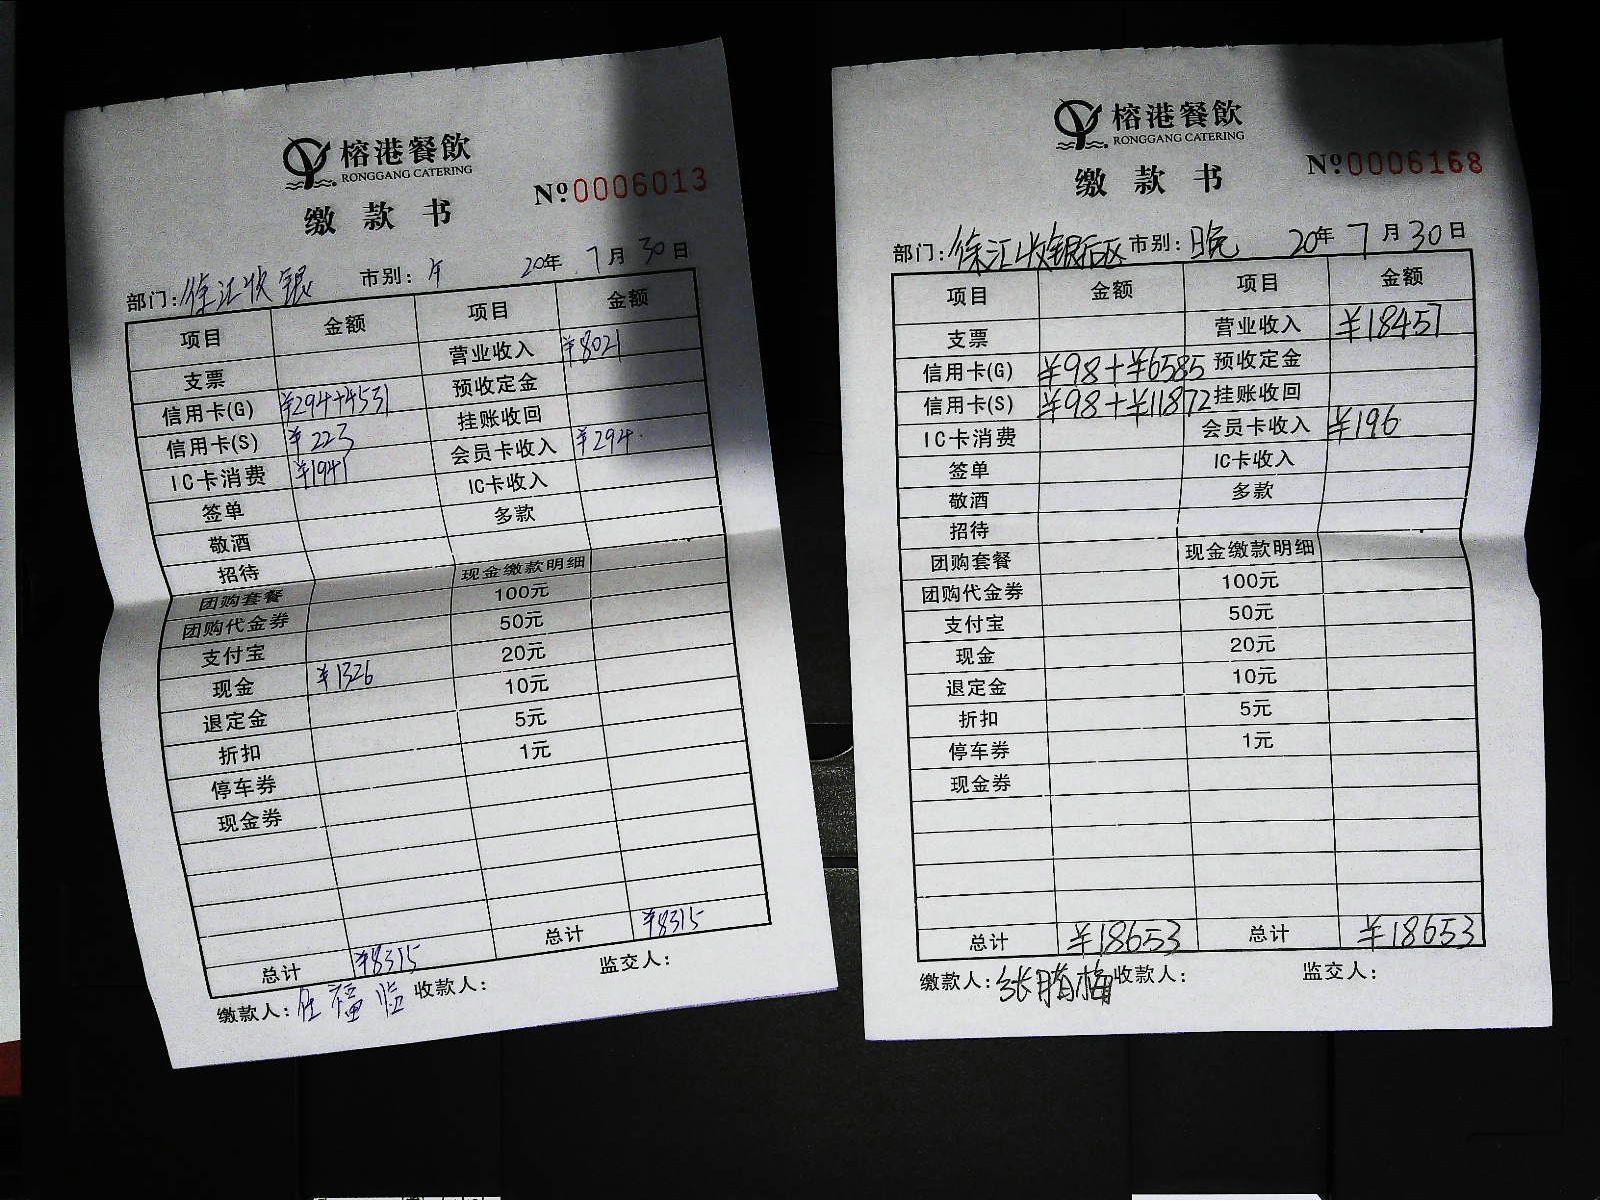 榕港餐飲
RONGGANG CATERING
缴款书
Nº0006013
部门:徐汇收银 市别:午 20年 7月30日
项目 金额 项目 金额
支票 营业收入 ¥8021
信用卡(G) ¥294+4531 预收定金
信用卡(S) ¥223 挂账收回
IC卡消费 ¥1941 会员卡收入 ¥294
签单 IC卡收入
敬酒 多款
招待
团购套餐 现金缴款明细
团购代金券 100元
支付宝 50元
现金 ¥1326 20元
退定金 10元
折扣 5元
停车券 1元
现金券
总计 ¥8315 总计 ¥8315
缴款人: 收款人: 监交人:
榕港餐飲
RONGGANG CATERING
缴款书
Nº0006168
部门:徐汇收银后区 市别:晚 20年7月30日
项目 金额 项目 金额
支票 营业收入 ¥18457
信用卡(G) ¥98+¥6585 预收定金
信用卡(S) ¥98+¥11872 挂账收回
IC卡消费 会员卡收入 ¥196
签单 IC卡收入
敬酒 多款
招待
团购套餐 现金缴款明细
团购代金券 100元
支付宝 50元
现金 20元
退定金 10元
折扣 5元
停车券 1元
现金券
总计 ¥18653 总计 ¥18653
缴款人: 收款人: 监交人: